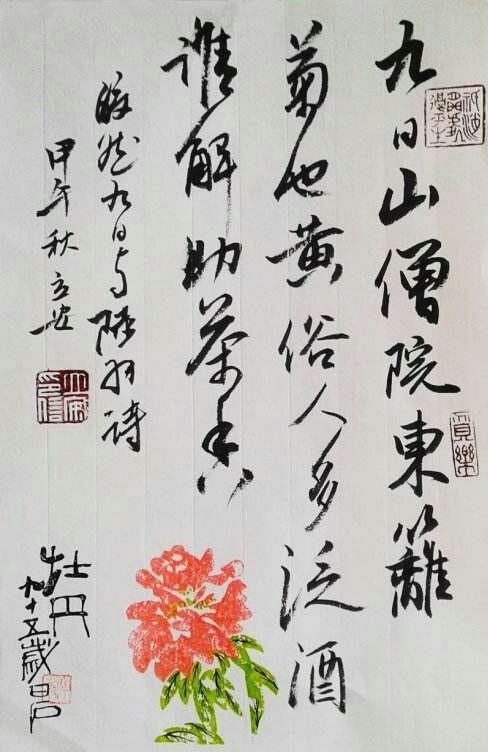 九日山僧院東籬
菊也黄俗人多泛酒
誰解助茶香
皎然九日与陸羽詩
甲午秋立安
牡丹
九十五歲